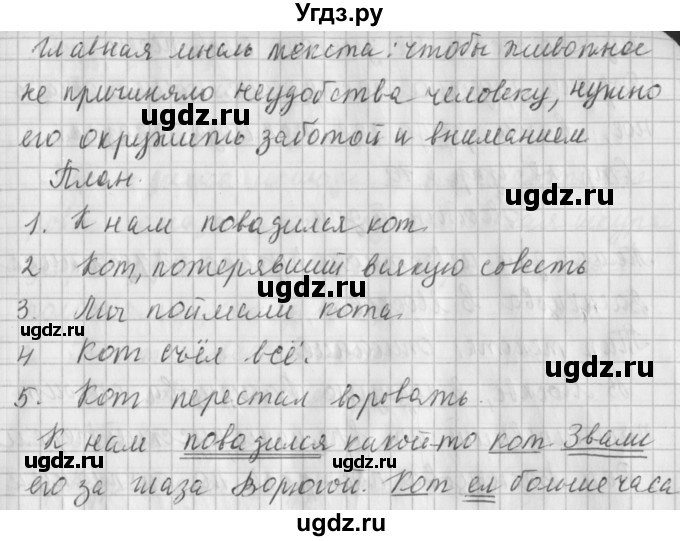 Угдз.ру
Главная мысль текста: чтобы животное
не причиняло неудобства человеку, нужно
его окружить заботой и вниманием
План.
1. К нам повадился кот.
2 Кот, потерявший всякую совесть
3. Мы поймали кота.
4 Кот съел всё.
5. Кот перестал воровать.
К нам повадился какой-то кот Звали
его за глаза Ворюгой. Кот ел больше часа
ugdz.ru
ugdz.ru
ugdz.ru
ugdz.ru
ugdz.ru
ugdz.ru
ugdz.ru
ugdz.ru
ugdz.ru
ugdz.ru